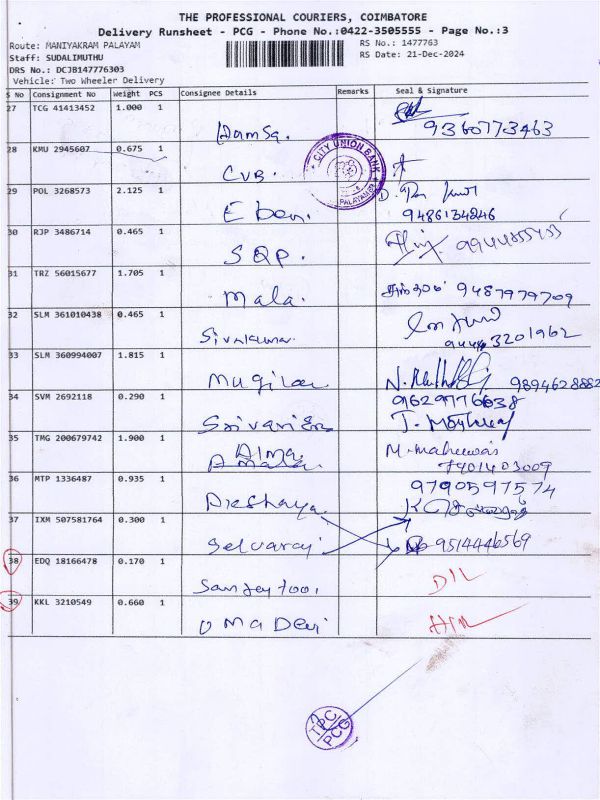 THE PROFESSIONAL COURIERS, COIMBATORE
Delivery Runsheet - PCG - Phone No.:0422-3505555 - Page No.:3
Route: MANIYAKRAM PALAYAM RS No.: 1477763
Staff: SUDALIMUTHU RS Date: 21-Dec-2024
DRS No.: DCJB147776303
Vehicle: Two Wheeler Delivery
S No Consignment No Weight PCS Consignee Details Remarks Seal & Signature
27 TCG 41413452 1.000 1 Hamsa. 9360773463
28 KMU 2945607 0.675 1 CVB.
CITY UNION BANK
29 POL 3268573 2.125 1 Eben. 9486134846
30 RJP 3486714 0.465 1 SQP. 9944855455
31 TRZ 56015677 1.705 1 Mala. 9487979709
32 SLM 361010438 0.465 1 Sivakumar 94443201962
33 SLM 360994007 1.815 1 Mugilan 9894628882
34 SVM 2692118 0.290 1 9629776638
35 TMG 200679742 1.900 1 Alma. M. Maheswari
7401403009
36 MTP 1336487 0.935 1 Akshaya. 9790597574
37 IXM 507581764 0.300 1 Selvaraj 9514446569
38 EDQ 18166478 0.170 1 DIL
39 KKL 3210549 0.660 1 Uma Devi
TPC
PCG